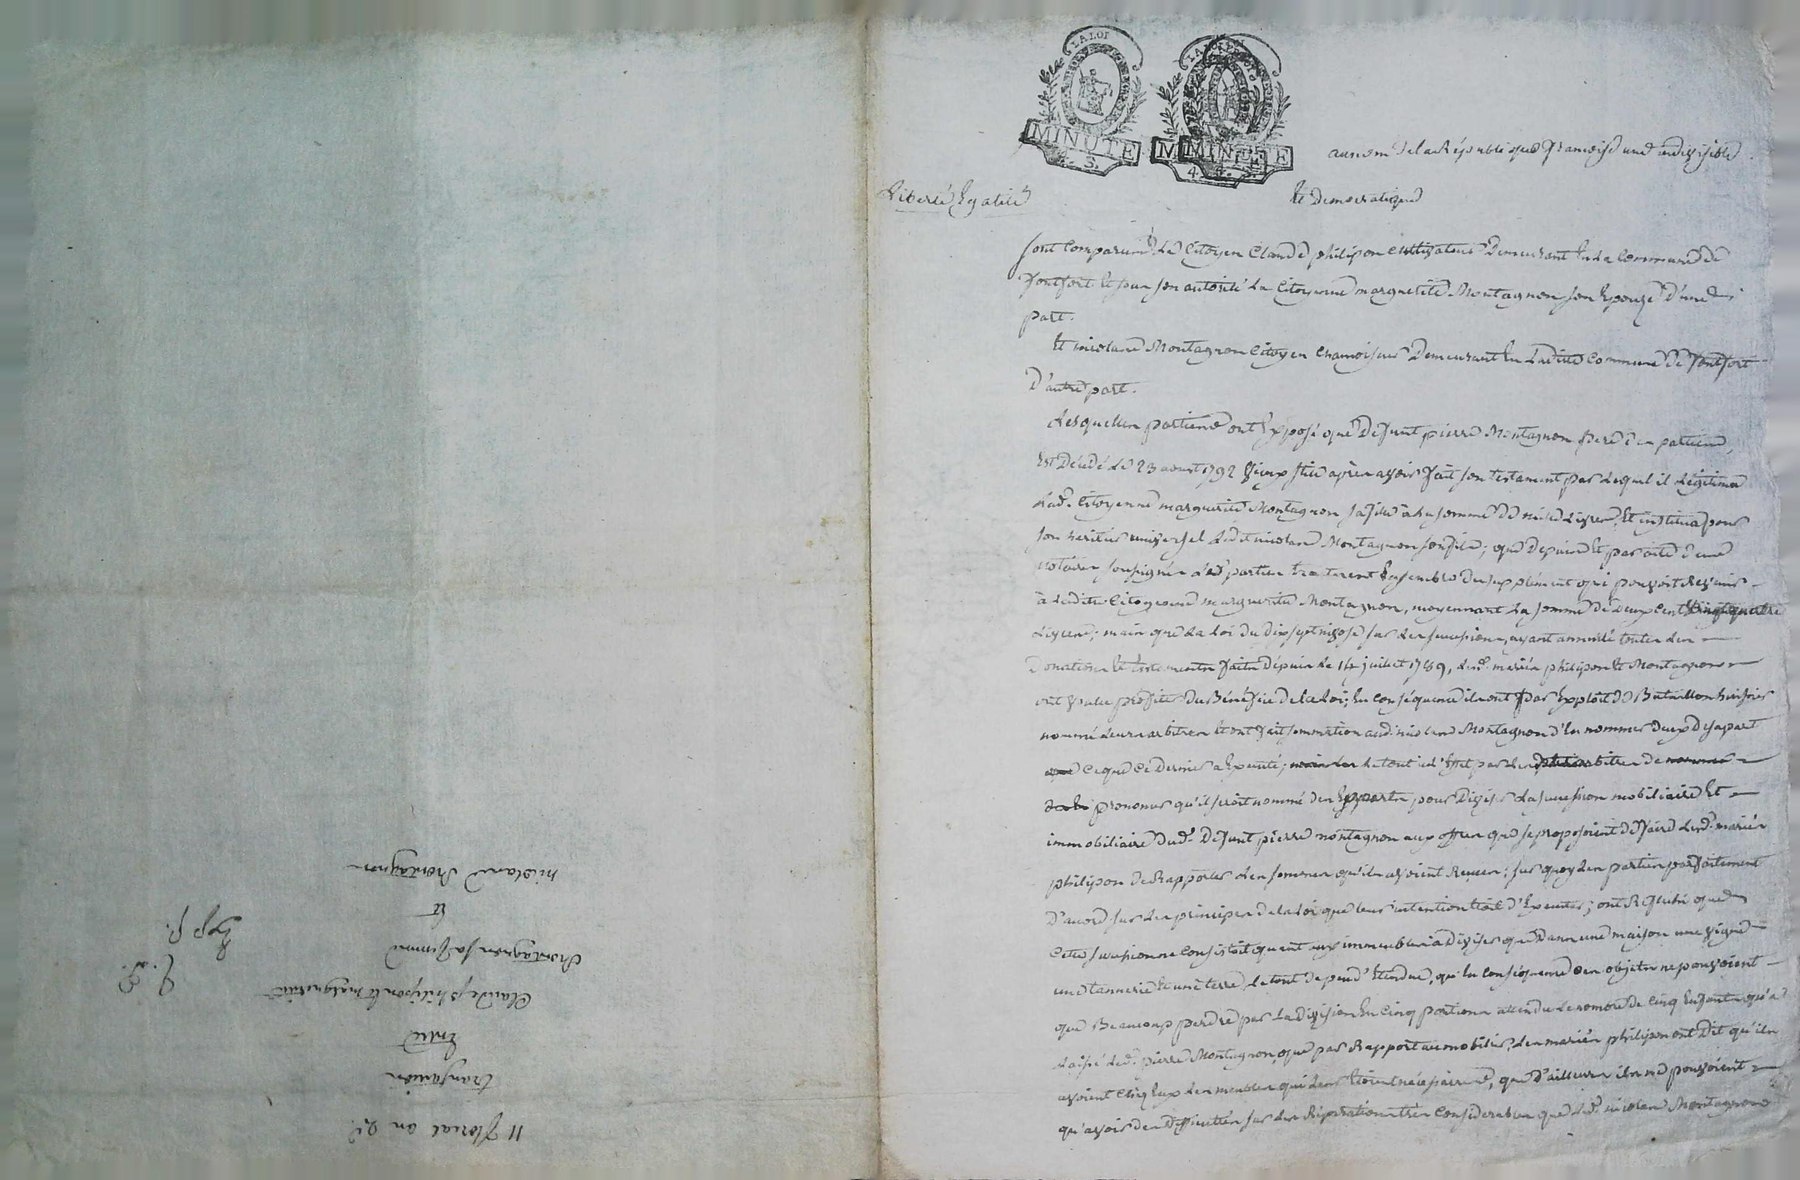 LA LOI
LA LOI
MINUTE
4. S.
MINUTE
4. S.
au nom de la République françoise une indivisible
Liberté Egalité
Et Democratique
sont comparus le Citoyen Claude philipon Cultivateur Demeurant En la Commune de
fontfort Et sous son autorité La Citoyenne marguerite Montagnon son Epouze d'une
part.
Et nicoland Montagnon Citoyen Chamoiseur Demeurant En Laditte Commune de fontfort
D'autre part.
Lesquelles parties ont Exposé que Defunt pierre Montagnon pere des parties,
Est Décédé le 23 aoust 1792 vieux stile après avoir fait son testament par Lequel il Légitima
Lad. Citoyenne marguerite Montagnon sa fille à la somme de mille Livres, Et institua pour
son heritier universel Ledit nicoland Montagnon son fils; que depuis Et par acte
notaires soussignés Lesd parties traiterent Ensemble du supplément qui pouvoit Revenir
à Laditte Citoyenne marguerite Montagnon, moyennant La somme de deux Cent vingt quatre
Livres; mais que La loi du dix sept nivose sur Les successions, ayant annullé toutes Les
Donations Et testements faits depuis Le 14 juillet 1789, Lesd. mariés philipon Et Montagnon
ont voulu profiter du Bénéfice de la loi; En Conséquence ils ont par Exploit de Bataillon huissier
nommé Leurs arbitres Et ont fait sommation aud. nicoland Montagnon d'En nommer deux de sa part
Ce que Ce dernier a Executé; Le tout a L'Effet par Les arbitres de
prononcer qu'il seroit nommé des Experts pour Diviser La succession mobiliaire Et
immobiliaire dud. Defunt pierre montagnon aux offres que se proposoient de faire Lesd. mariés
philipon de Rapporter Les sommes qu'ils avoient Reçues; sur quoy Les parties parfaitement
D'accord sur Les principes de la loi que leur intention Etoit d'Executer; ont Réfléchi que
Cette succession ne Consistoit quant aux immeubles à Diviser que Dans une maison une vigne
une tannerie Et une terre, Le tout de peu d'Etendue, qu'En Conséquence Ces objets ne pouvoient
que Beaucoup perdre par La division En Cinq portions attendu Le nombre de Cinq Enfants qu'a
Laissé Led. pierre Montagnon, que par Rapport au mobilier, Les mariés philipon ont Dit qu'ils
avoient Chez Eux Les meubles qui Leur Etoient nécessaires, que d'ailleurs ils ne pouvoient
qu'avoir des Difficultés sur Les Réparations très Considerables que Led. nicoland Montagnon
11 floreal an 2d.
transaction
Entre
Claude philipon Et marguerite
Montagnon sa femme
Et
nicoland Montagnon